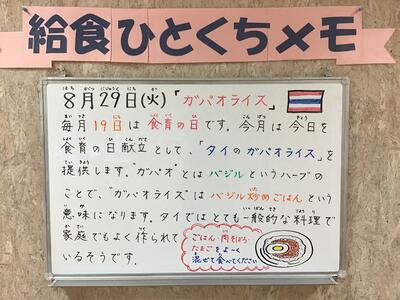 給食ひとくちメモ
8月29日(火)「ガパオライス」
毎月19日は食育の日です。今月は今日を
食育の日献立として、「タイのガパオライス」を
提供します。"ガパオ"とはバジルというハーブの
ことで、"ガパオライス"はバジル炒めごはんという
意味になります。タイではとても一般的な料理で
家庭でもよく作られて
いるそうです。
ごはん・肉そぼろ・
たまごをよーく
混ぜて食べてください